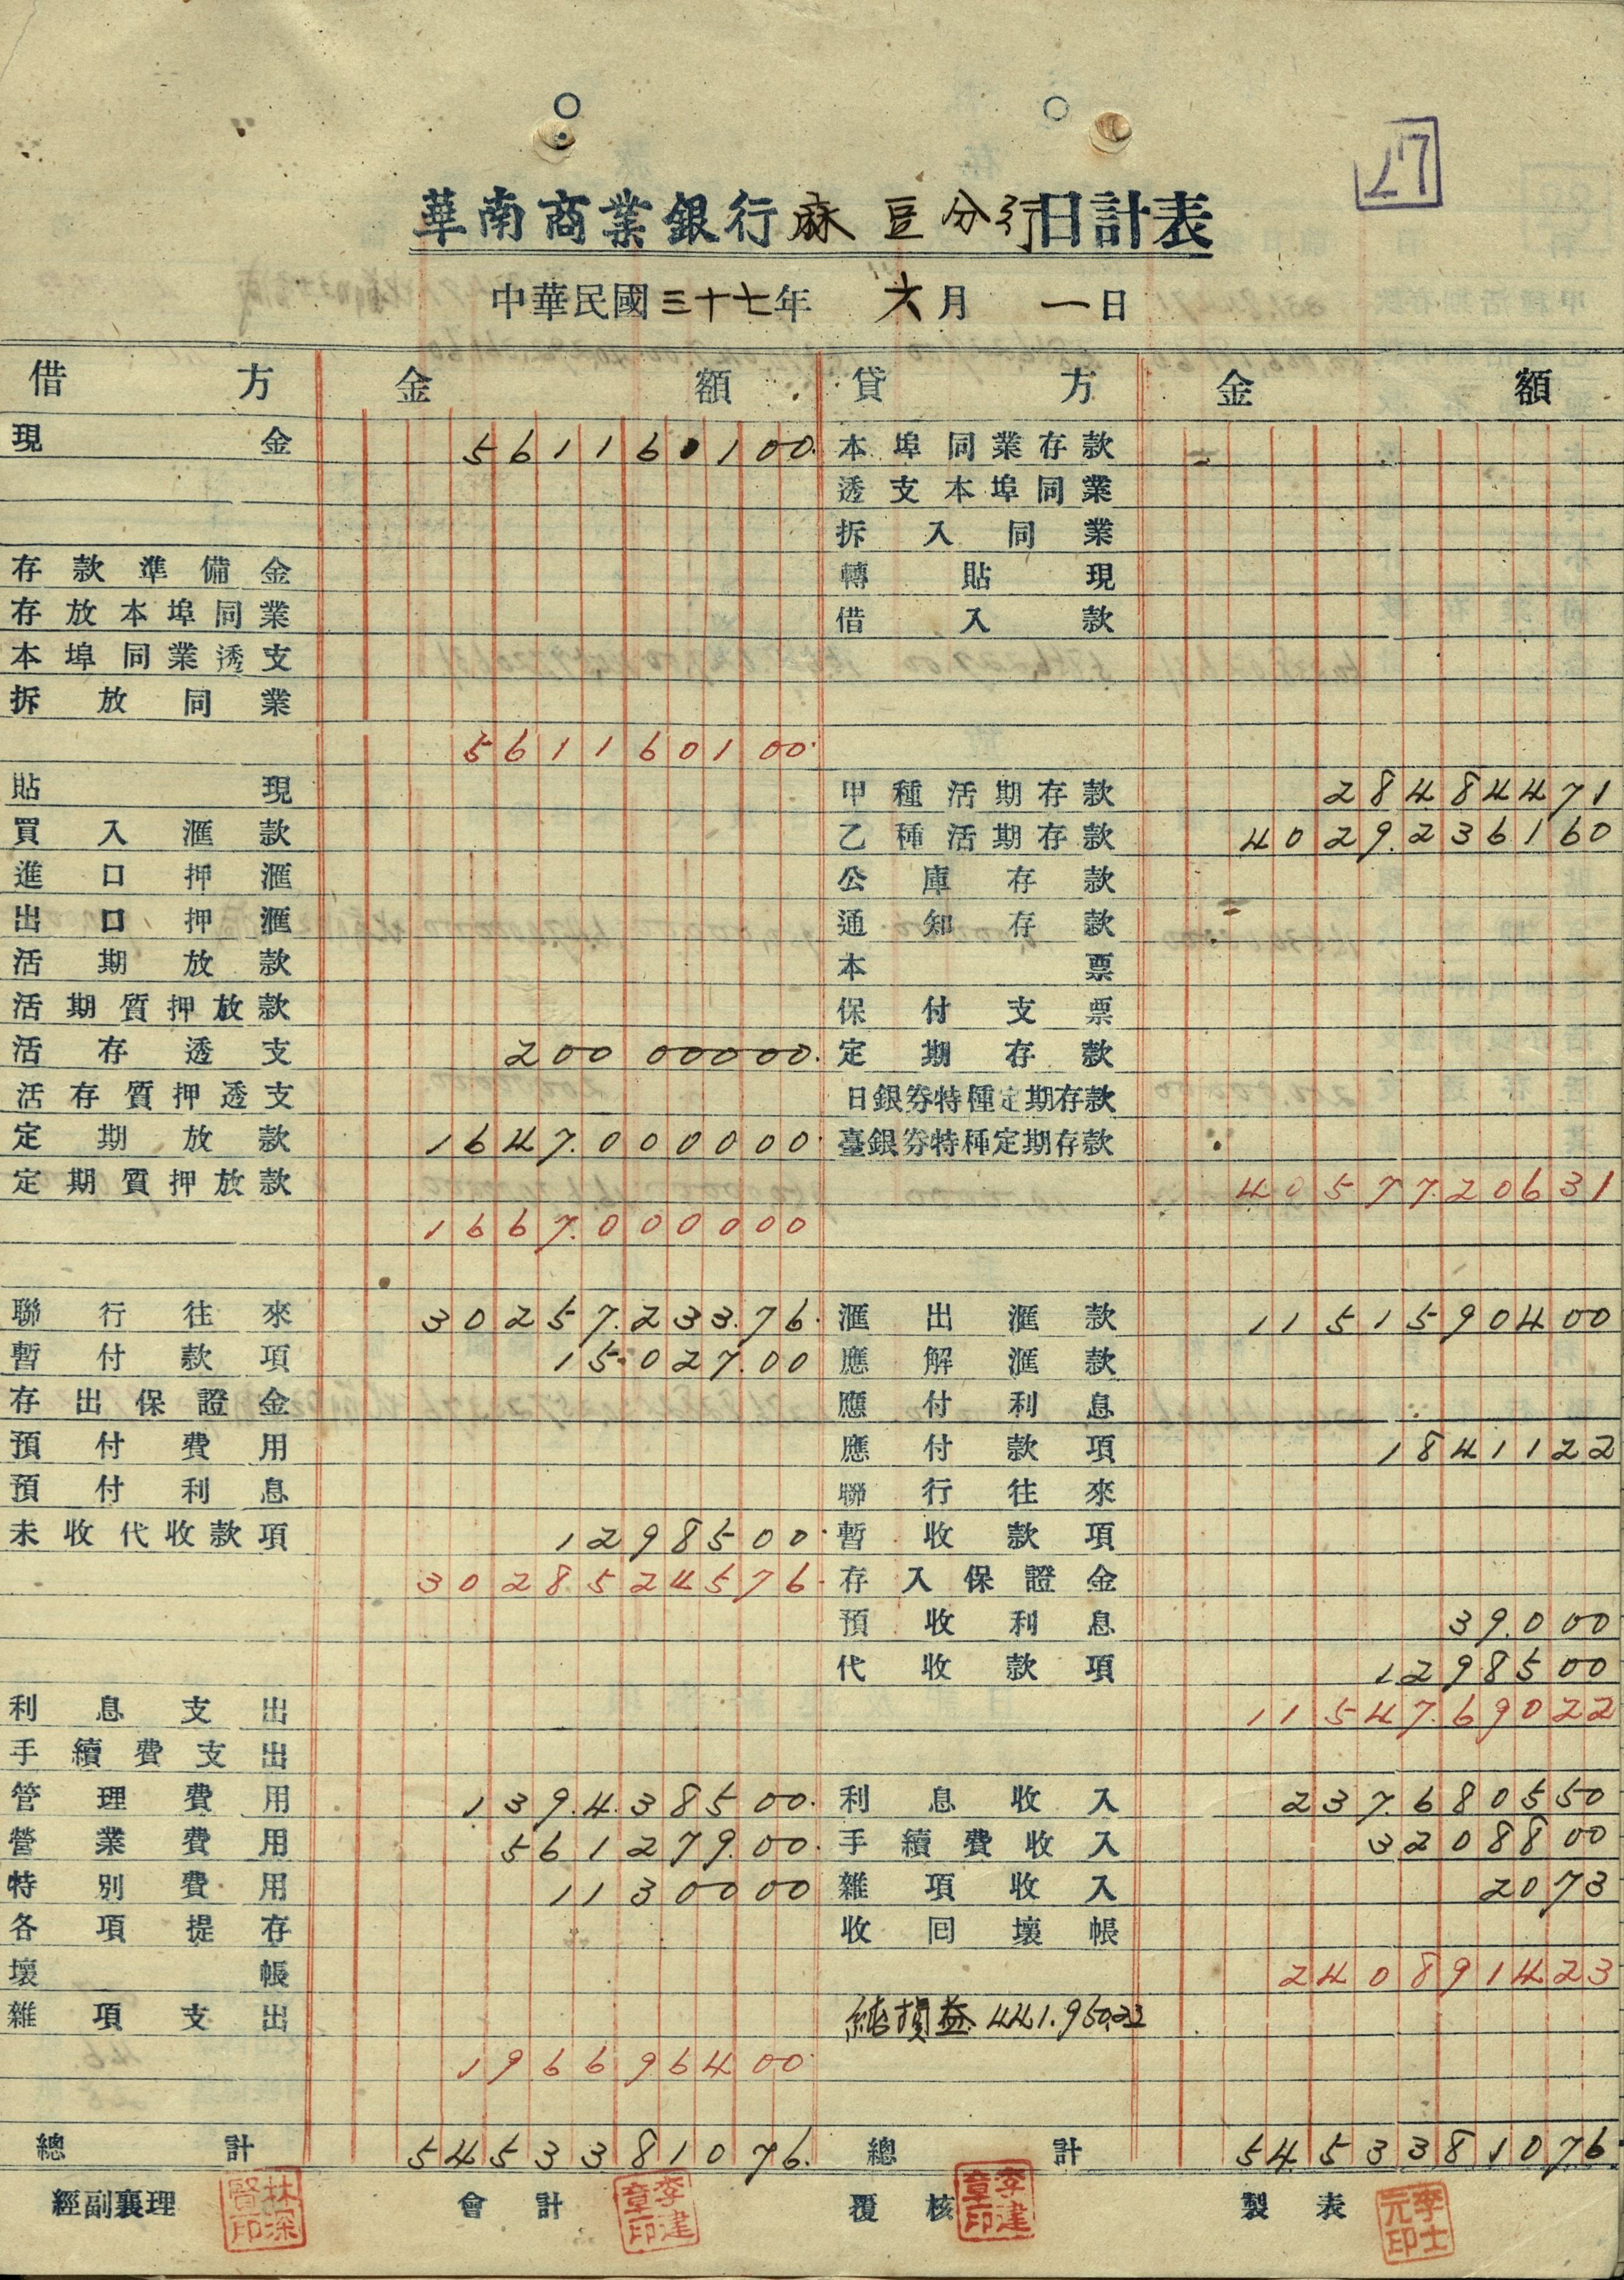 27
華南商業銀行麻豆分行日計表
中華民國三十七年 六月 一日
借方 金額 貸方 金額
現金 561160100 本埠同業存款
透支本埠同業
拆入同業
存款準備金 轉貼現
存放本埠同業 借入款
本埠同業透支
拆放同業
561160100
貼現 甲種活期存款 28484471
買入滙款 乙種活期存款 4029.236160
進口押滙 公庫存款
出口押滙 通知存款
活期放款 本票
活期質押放款 保付支票
活存透支 20000000 定期存款
活存質押透支 日銀券特種定期存款
定期放款 1647.000000 臺銀券特種定期存款
定期質押放款 40577.20631
1667.000000
聯行往來 30257.233.76 滙出滙款 1151590400
暫付款項 15.027.00 應解滙款
存出保證金 應付利息
預付費用 應付款項 1841122
預付利息 聯行往來
未收代收款項 1298500 暫收款項
3028524576 存入保證金
預收利息 39.000
代收款項 1298500
利息支出 11547.69022
手續費支出
管理費用 139.4.38500 利息收入 237.680550
營業費用 561279.00 手續費收入 3208800
特別費用 1130000 雜項收入 2073
各項提存 收回壞帳
壞帳 240891423
雜項支出 純損益 441.950.23
196696400
總計 5453381076. 總計 5453381076.
經副襄理 林深賢印 會計 李建章印 覆核 李建章印 製表 李士元印